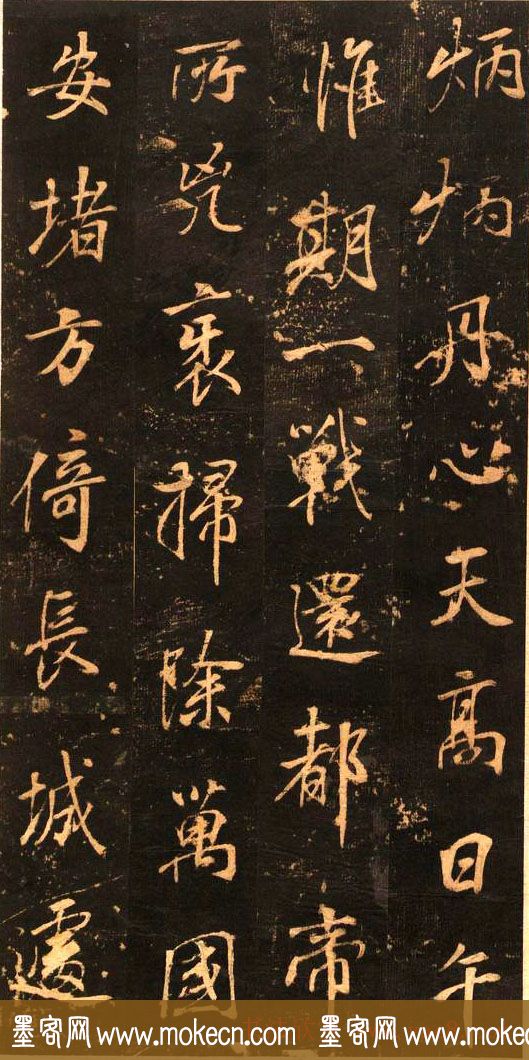 炳炳丹心天高日午
惟期一戰還都帝
所兇衺掃除萬國
安堵方倚長城遽
墨客网 www.mokecn.com 墨客网 www.mokecn.com